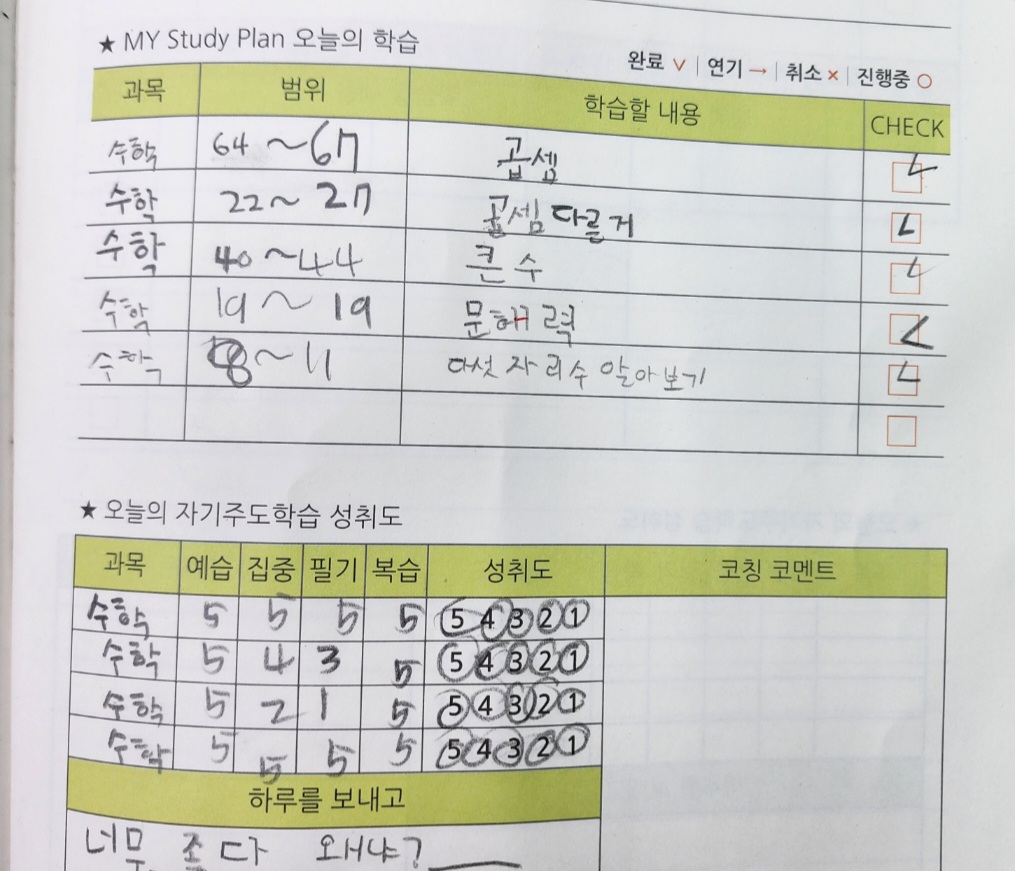 ★ MY Study Plan 오늘의 학습
완료 ∨ | 연기 → | 취소 × | 진행중 ○
과목 범위 학습할 내용 CHECK
수학 64~67 곱셈
수학 22~27 곱셈 다를게
수학 40~44 큰 수
수학 19~19 문해력
수학 8~11 다섯 자리수 알아보기
★ 오늘의 자기주도학습 성취도
과목 예습 집중 필기 복습 성취도 코칭 코멘트
수학 5 5 5 5 5 4 3 2 1
수학 5 4 3 5 5 4 3 2 1
수학 5 2 1 5 5 4 3 2 1
수학 5 5 5 5 5 4 3 2 1
하루를 보내고
너무 좋다 왜냐?